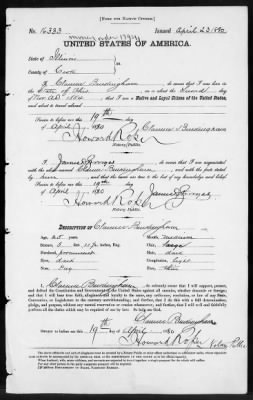 [FORM FOR NATIVE CITIZEN.]
No. 16333 Issued April 23 1880
UNITED STATES OF AMERICA.
State of Illinois
County of Cook
I, Clarence Burlingham, do swear that I was born in the
State of Ohio, on or about the Second day
of Nov A.D. 1854; that I am a Native and Loyal Citizen of the United States,
and about to travel abroad
Sworn to before me, this 19th
day of April 1880 Clarence Burlingham
Howard Roper
Notary Public.
I, James, do swear that I am acquainted
with the above named Clarence Burlingham, and with the facts stated by
him, and that the same are true to the best of my knowledge and belief.
Sworn to before me, this 19th
day of April 1880
Howard Roper
Notary Public.
DESCRIPTION OF Clarence Burlingham
Age, 25 Mouth, medium
Stature, 5 feet, inches, Eng. Chin, large
Forehead, prominent Hair, dark
Eyes, dark Complexion, light
Nose, Face, thin
I, Clarence Burlingham, do solemnly swear that I will support, protect,
and defend the Constitution and Government of the United States against all enemies, whether domestic or foreign;
and that I will bear true faith, allegiance, and loyalty to the same, any ordinance, resolution, or law of any State,
Convention, or Legislature to the contrary notwithstanding; and further, that I do this with a full determination,
pledge, and purpose, without any mental reservation or evasion whatsoever; and further, that I will well and faithfully
perform all the duties which may be required of me by law: So help me God.
Clarence Burlingham
Sworn to before me, this 19th day of April 1880
Howard Roper